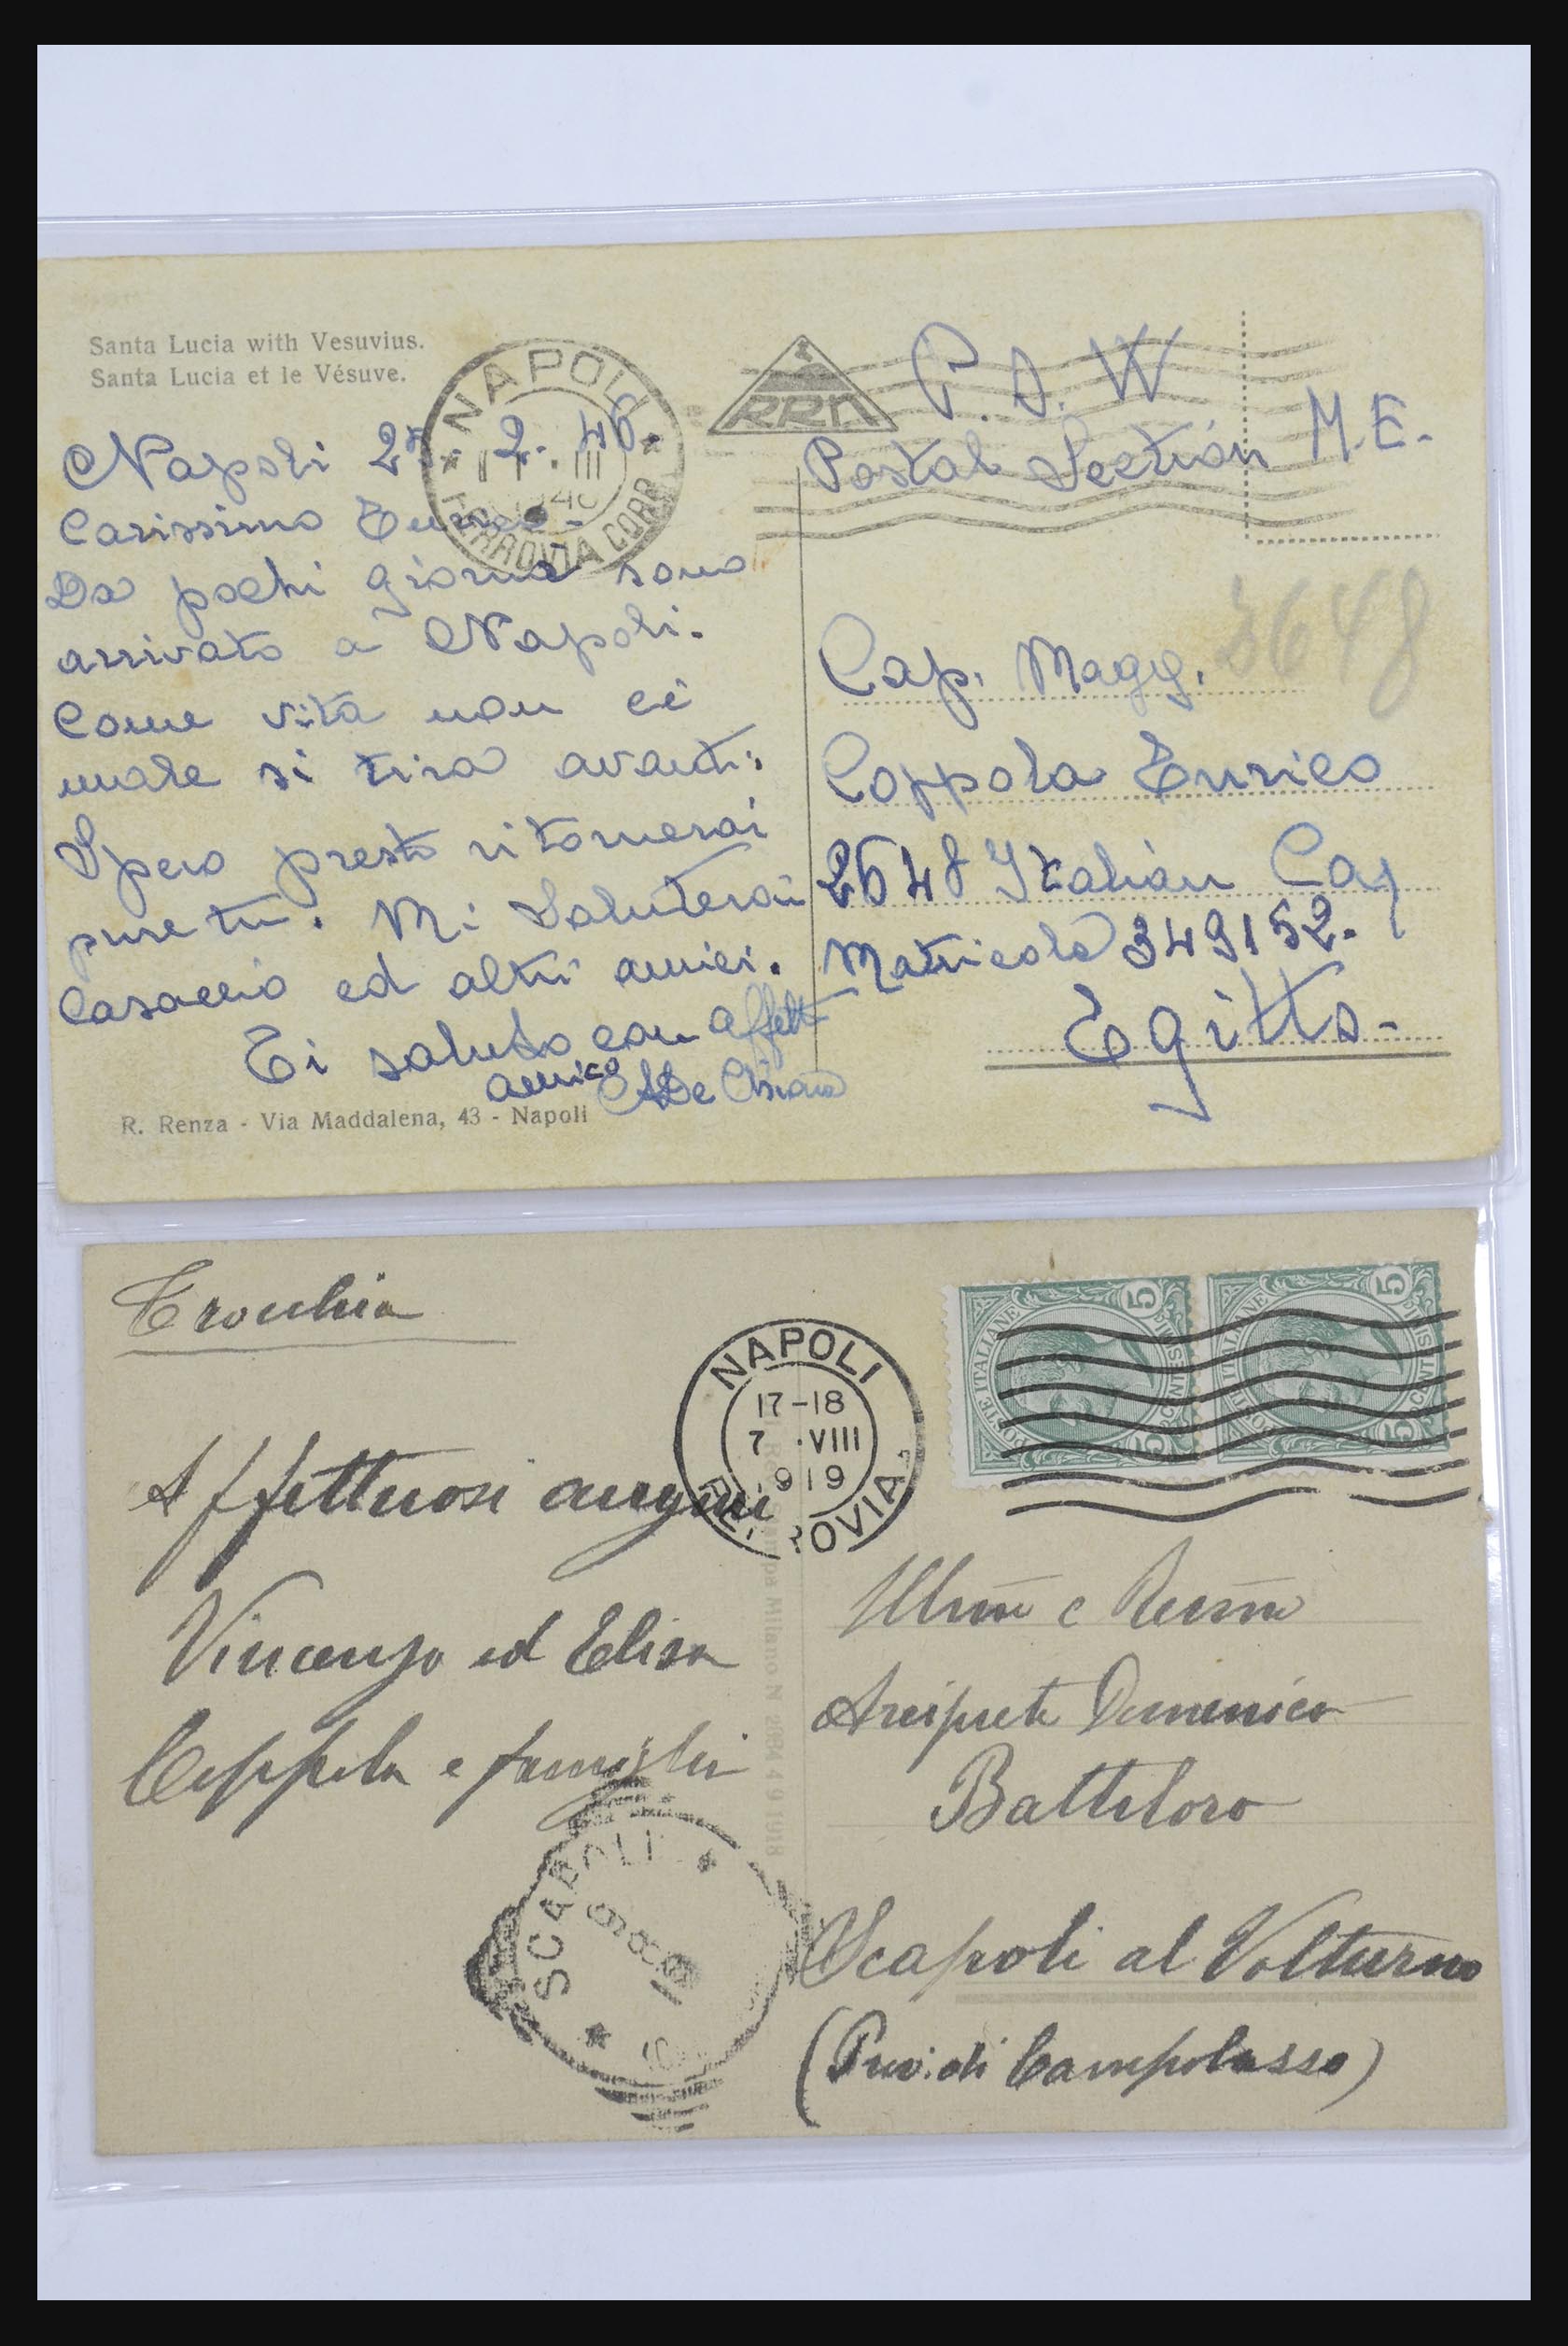 Santa Lucia with Vesuvius.
Santa Lucia et le Vésuve.
NAPOLI
III
FERROVIA CORR
RRR
Napoli 27. 2. 46.
Carissimo
Da pochi giorni sono
arrivato a Napoli.
Come vita non c'è
male si tira avanti.
Spero presto ritornerai
pure tu. Mi Saluterai
ed altri amici.
Ti saluto con affett
amico De Chiara
R. Renza - Via Maddalena, 43 - Napoli
P.O.W
Postal Section M.E.
3648
Cap. Magg.
Coppola Enrico
2648 Italian
Matricola 349152.
Egitto-
Trocchia
Affettuosi auguri
Vincenzo ed Elisa
Coppola e famiglia
NAPOLI
17-18
7 ·VIII
1919
FERROVIA
POSTE ITALIANE
5 CENTESIMI 5
POSTE ITALIANE
5 CENTESIMI 5
Stampa Milano N 2984 4 9 1918
Illmo e Revmo
Arciprete Domenico
Battiloro
Scapoli al Volturno
(Prov. di Campobasso)
SCAPOLI